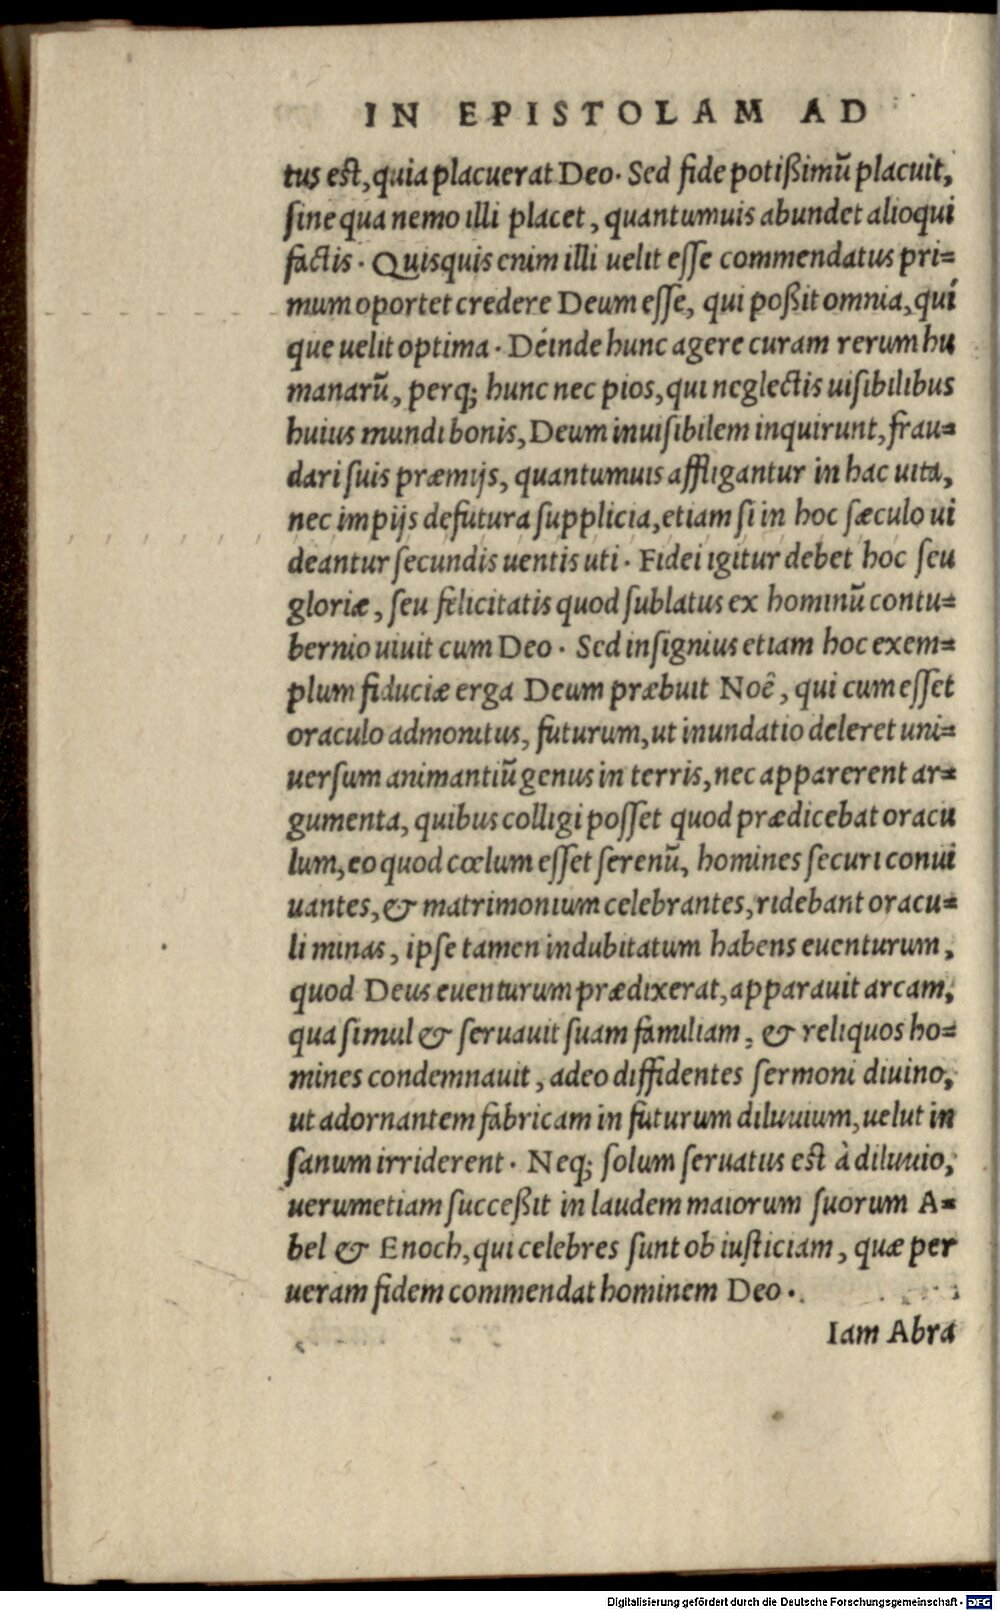 IN EPISTOLAM AD
tus est, quia placuerat Deo. Sed fide potißimũ placuit,
sine qua nemo illi placet, quantumuis abundet alioqui
factis. Quisquis enim illi uelit esse commendatus pri=
mum oportet credere Deum esse, qui poßit omnia, quí
que uelit optima. Déinde hunc agere curam rerum hu
manarũ, perq; hunc nec pios, qui neglectis uisibilibus
huius mundi bonis, Deum inuisibilem inquirunt, frau=
dari suis præmijs, quantumuis affligantur in hac uita,
nec impijs defutura supplicia, etiam si in hoc sæculo ui
deantur secundis uentis uti. Fidei igitur debet hoc seu
gloriæ, seu felicitatis quod sublatus ex hominũ contu=
bernio uiuit cum Deo. Sed insignius etiam hoc exem=
plum fiduciæ erga Deum præbuit Noê, qui cum esset
oraculo admonitus, futurum, ut inundatio deleret uni=
uersum animantiũ genus in terris, nec apparerent ar=
gumenta, quibus colligi posset quod prædicebat oracu
lum, eo quod cœlum esset serenũ, homines securi conui
uantes, & matrimonium celebrantes, ridebant oracu=
li minas, ipse tamen indubitatum habens euenturum,
quod Deus euenturum prædixerat, apparauit arcam,
qua simul & seruauit suam familiam, & reliquos ho=
mines condemnauit, adeo diffidentes sermoni diuino,
ut adornantem fabricam in futurum diluuium, uelut in
sanum irriderent. Neq; solum seruatus est à diluuio,
uerumetiam succeßit in laudem maiorum suorum A=
bel & Enoch, qui celebres sunt ob iusticiam, quæ per
ueram fidem commendat hominem Deo.
Iam Abra
Digitalisierung gefördert durch die Deutsche Forschungsgemeinschaft - DFG